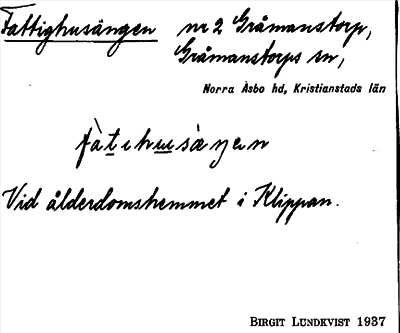 Fattighusängen nr 2 Gråmanstorp,
Gråmanstorps sn,
Norra Åsbo hd, Kristianstads län
Vid ålderdomshemmet i Klippan.
BIRGIT LUNDKVIST 1937